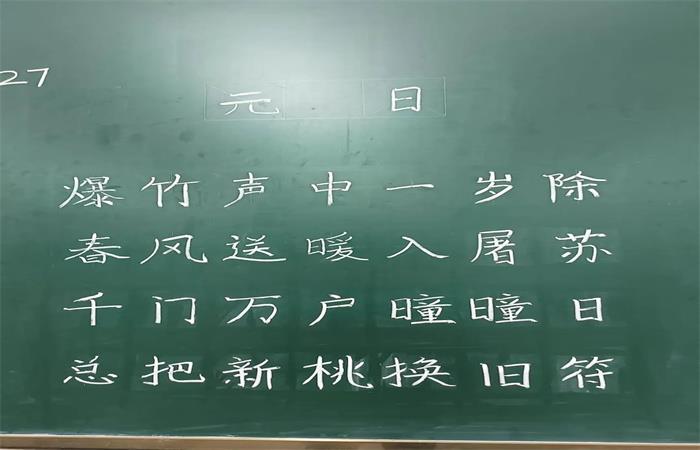 27
元 日
爆竹声中一岁除
春风送暖入屠苏
千门万户曈曈日
总把新桃换旧符